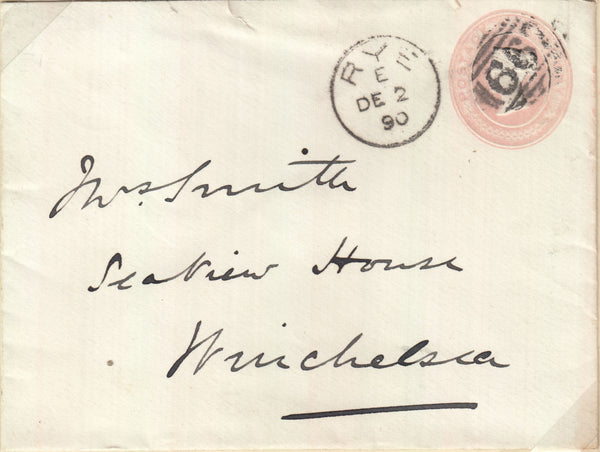 RYE
E
DE 2
90
Mrs. Smith
Sea View House
Winchelsea